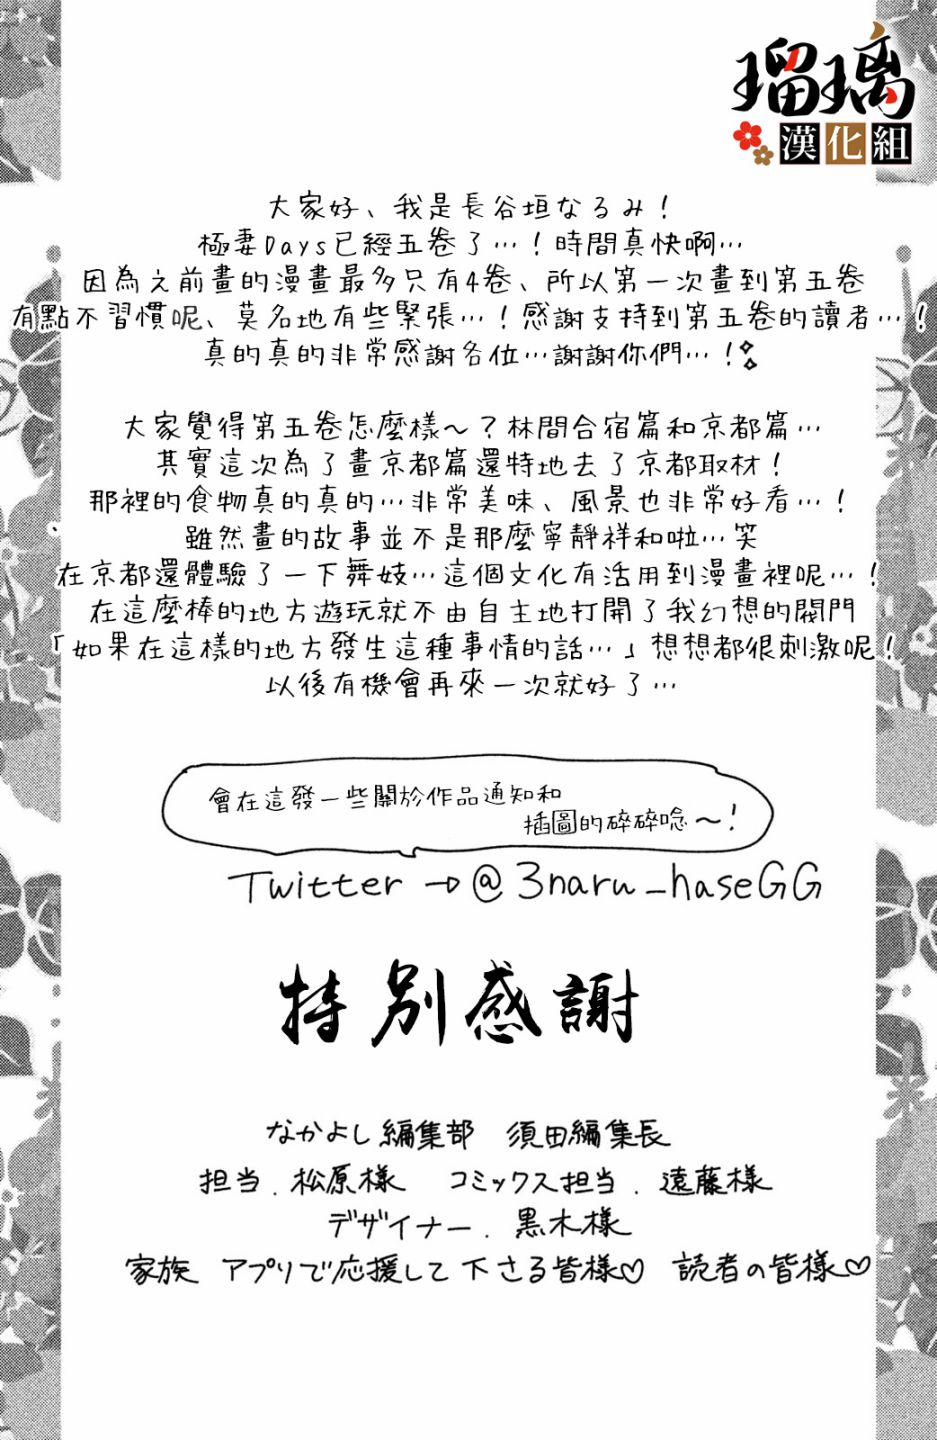 瑠璃
漢化組
大家好、我是長谷垣なるみ！
極妻Days已經五卷了…！時間真快啊…
因為之前畫的漫畫最多只有4卷、所以第一次畫到第五卷
有點不習慣呢、莫名地有些緊張…！感謝支持到第五卷的讀者…！
真的真的非常感謝各位…謝謝你們…！
大家覺得第五卷怎麼樣～？林間合宿篇和京都篇…
其實這次為了畫京都篇還特地去了京都取材！
那裡的食物真的真的…非常美味、風景也非常好看…！
雖然畫的故事並不是那麼寧靜祥和啦…笑
在京都還體驗了一下舞妓…這個文化有活用到漫畫裡呢…！
在這麼棒的地方遊玩就不由自主地打開了我幻想的閥門
「如果在這樣的地方發生這種事情的話…」想想都很刺激呢！
以後有機會再來一次就好了…
會在這發一些關於作品通知和
插圖的碎碎唸～！
Twitter→@3naru_haseGG
特別感謝
なかよし編集部　須田編集長
担当．松原様　コミックス担当．遠藤様
デザイナー．黒木様
家族　アプリで応援して下さる皆様♡　読者の皆様♡